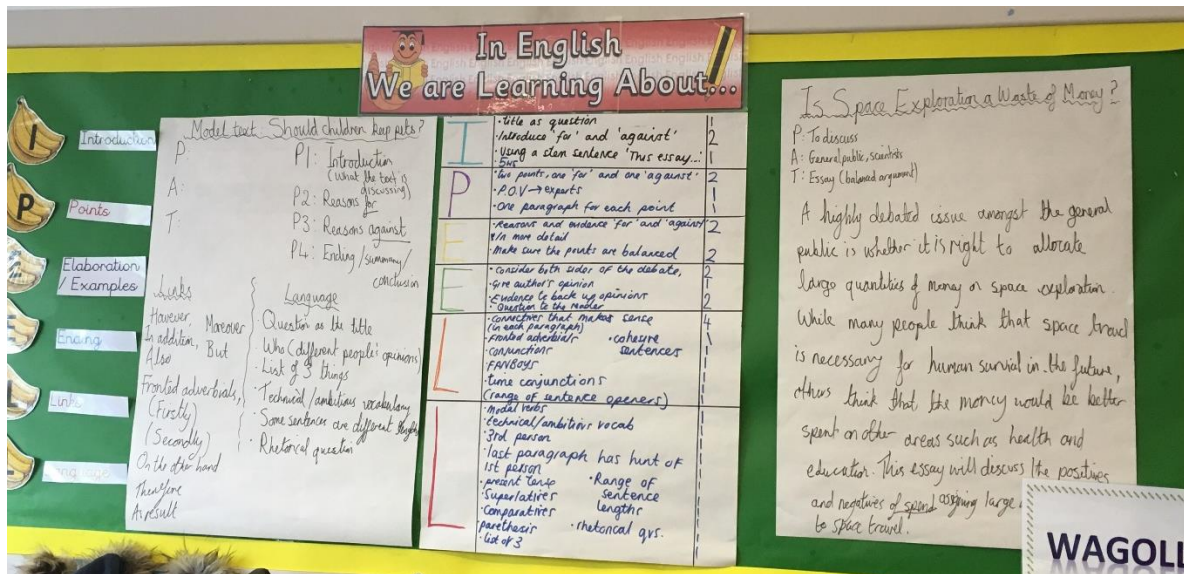 In English
We are Learning About...
I
Introduction
P
Points
Elaboration
/ Examples
Ending
Links
Language
Model text Should children keep pets?
P:
A:
T:
P1: Introduction
(What the text is
discussing)
P2: Reasons for
P3: Reasons against
P4: Ending/summary/
conclusion
Links
However
In addition,
Also
Moreover
But
Fronted adverbials,
(Firstly)
(Secondly)
On the other hand
Therefore
As result
Language
· Question as the title
· Who (different people's opinions)
· List of 3 things
· Technical/ambitious vocabulary
· Some sentences are different lengths
· Rhetorical question
I
· title as question 1
· Introduce 'for' and 'against' 2
· Using a stem sentence 'This essay...' 1
· 5Ws
P
· Two points, one 'for' and one 'against' 2
· P.O.V → experts 1
· One paragraph for each point 1
E
· Reasons and evidence 'for' and 'against' 2
in more detail
· Make sure the points are balanced 2
E
· Consider both sides of the debate, 2
· Give author's opinion 1
· Evidence to back up opinions 2
· Question to the reader
L
· Connectives that makes sense 4
(in each paragraph)
· Fronted adverbials
· conjunctions
· FANBOYS
· cohesive
sentences
· time conjunctions
(range of sentence openers)
L
· Modal verbs
· technical/ambitious vocab
· 3rd person
· last paragraph has hint of
1st person
· present tense
· Superlatives
· Comparatives
· parethesis
· list of 3
· Range of
sentence
lengths
· rhetorical qus.
Is Space Exploration a Waste of Money?
P: To discuss
A: General public, scientists
T: Essay (balanced argument)
A highly debated issue amongst the general
public is whether it is right to allocate
large quantities of money on space exploration.
While many people think that space travel
is necessary for human survival in the future,
others think that the money would be better
spent on other areas such as health and
education. This essay will discuss the positives
and negatives of spend assigning large
to space travel.
WAGOLL